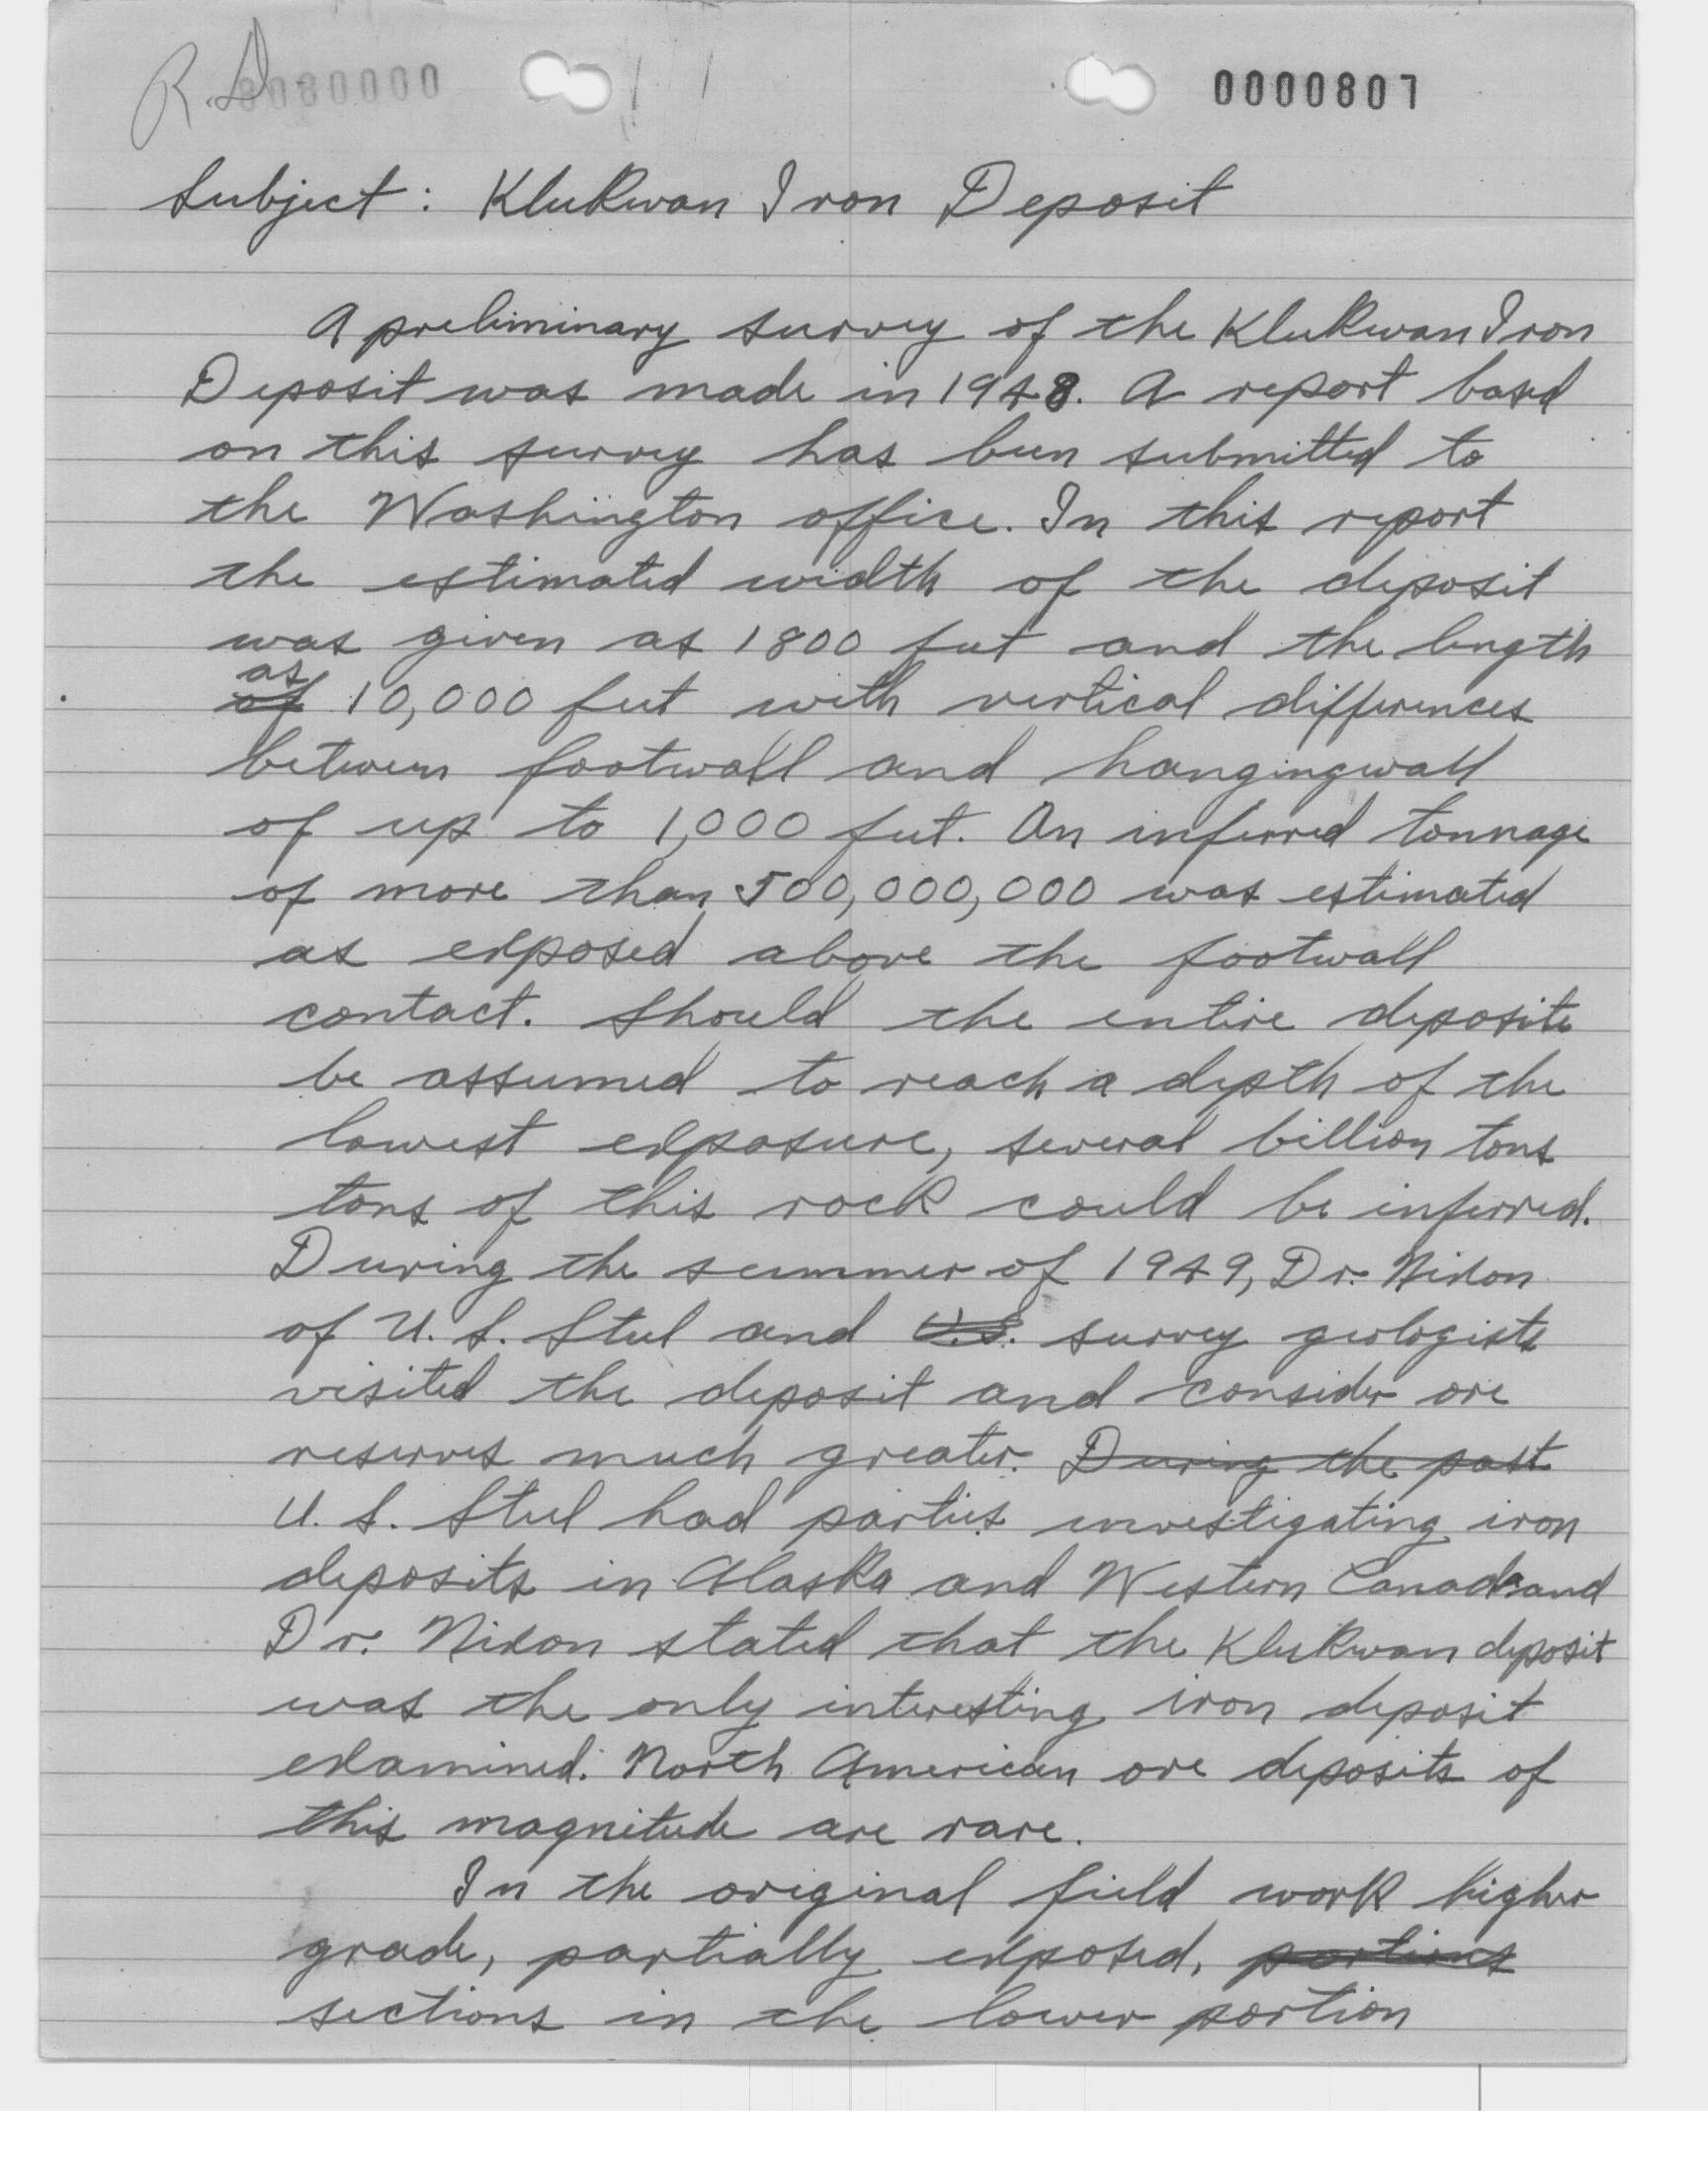 R.D.
0000807
Subject: Klukwan Iron Deposit
A preliminary survey of the Klukwan Iron
Deposit was made in 1948. A report based
on this survey has been submitted to
the Washington office. In this report
the estimated width of the deposit
was given as 1800 feet and the length
as
of 10,000 feet with vertical differences
between footwall and hangingwall
of up to 1,000 feet. An inferred tonnage
of more than 500,000,000 was estimated
as exposed above the footwall
contact. Should the entire deposits
be assumed to reach a depth of the
lowest exposure, several billion tons
tons of this rock could be inferred.
During the summer of 1949, Dr. Nixon
of U.S. Steel and U.S. survey geologists
visited the deposit and consider ore
reserves much greater. During the past
U.S. Steel had parties investigating iron
deposits in Alaska and Western Canada and
Dr. Nixon stated that the Klukwan deposit
was the only interesting iron deposit
examined. North American ore deposits of
this magnitude are rare.
In the original field work higher
grade, partially exposed, portions
sections in the lower portion